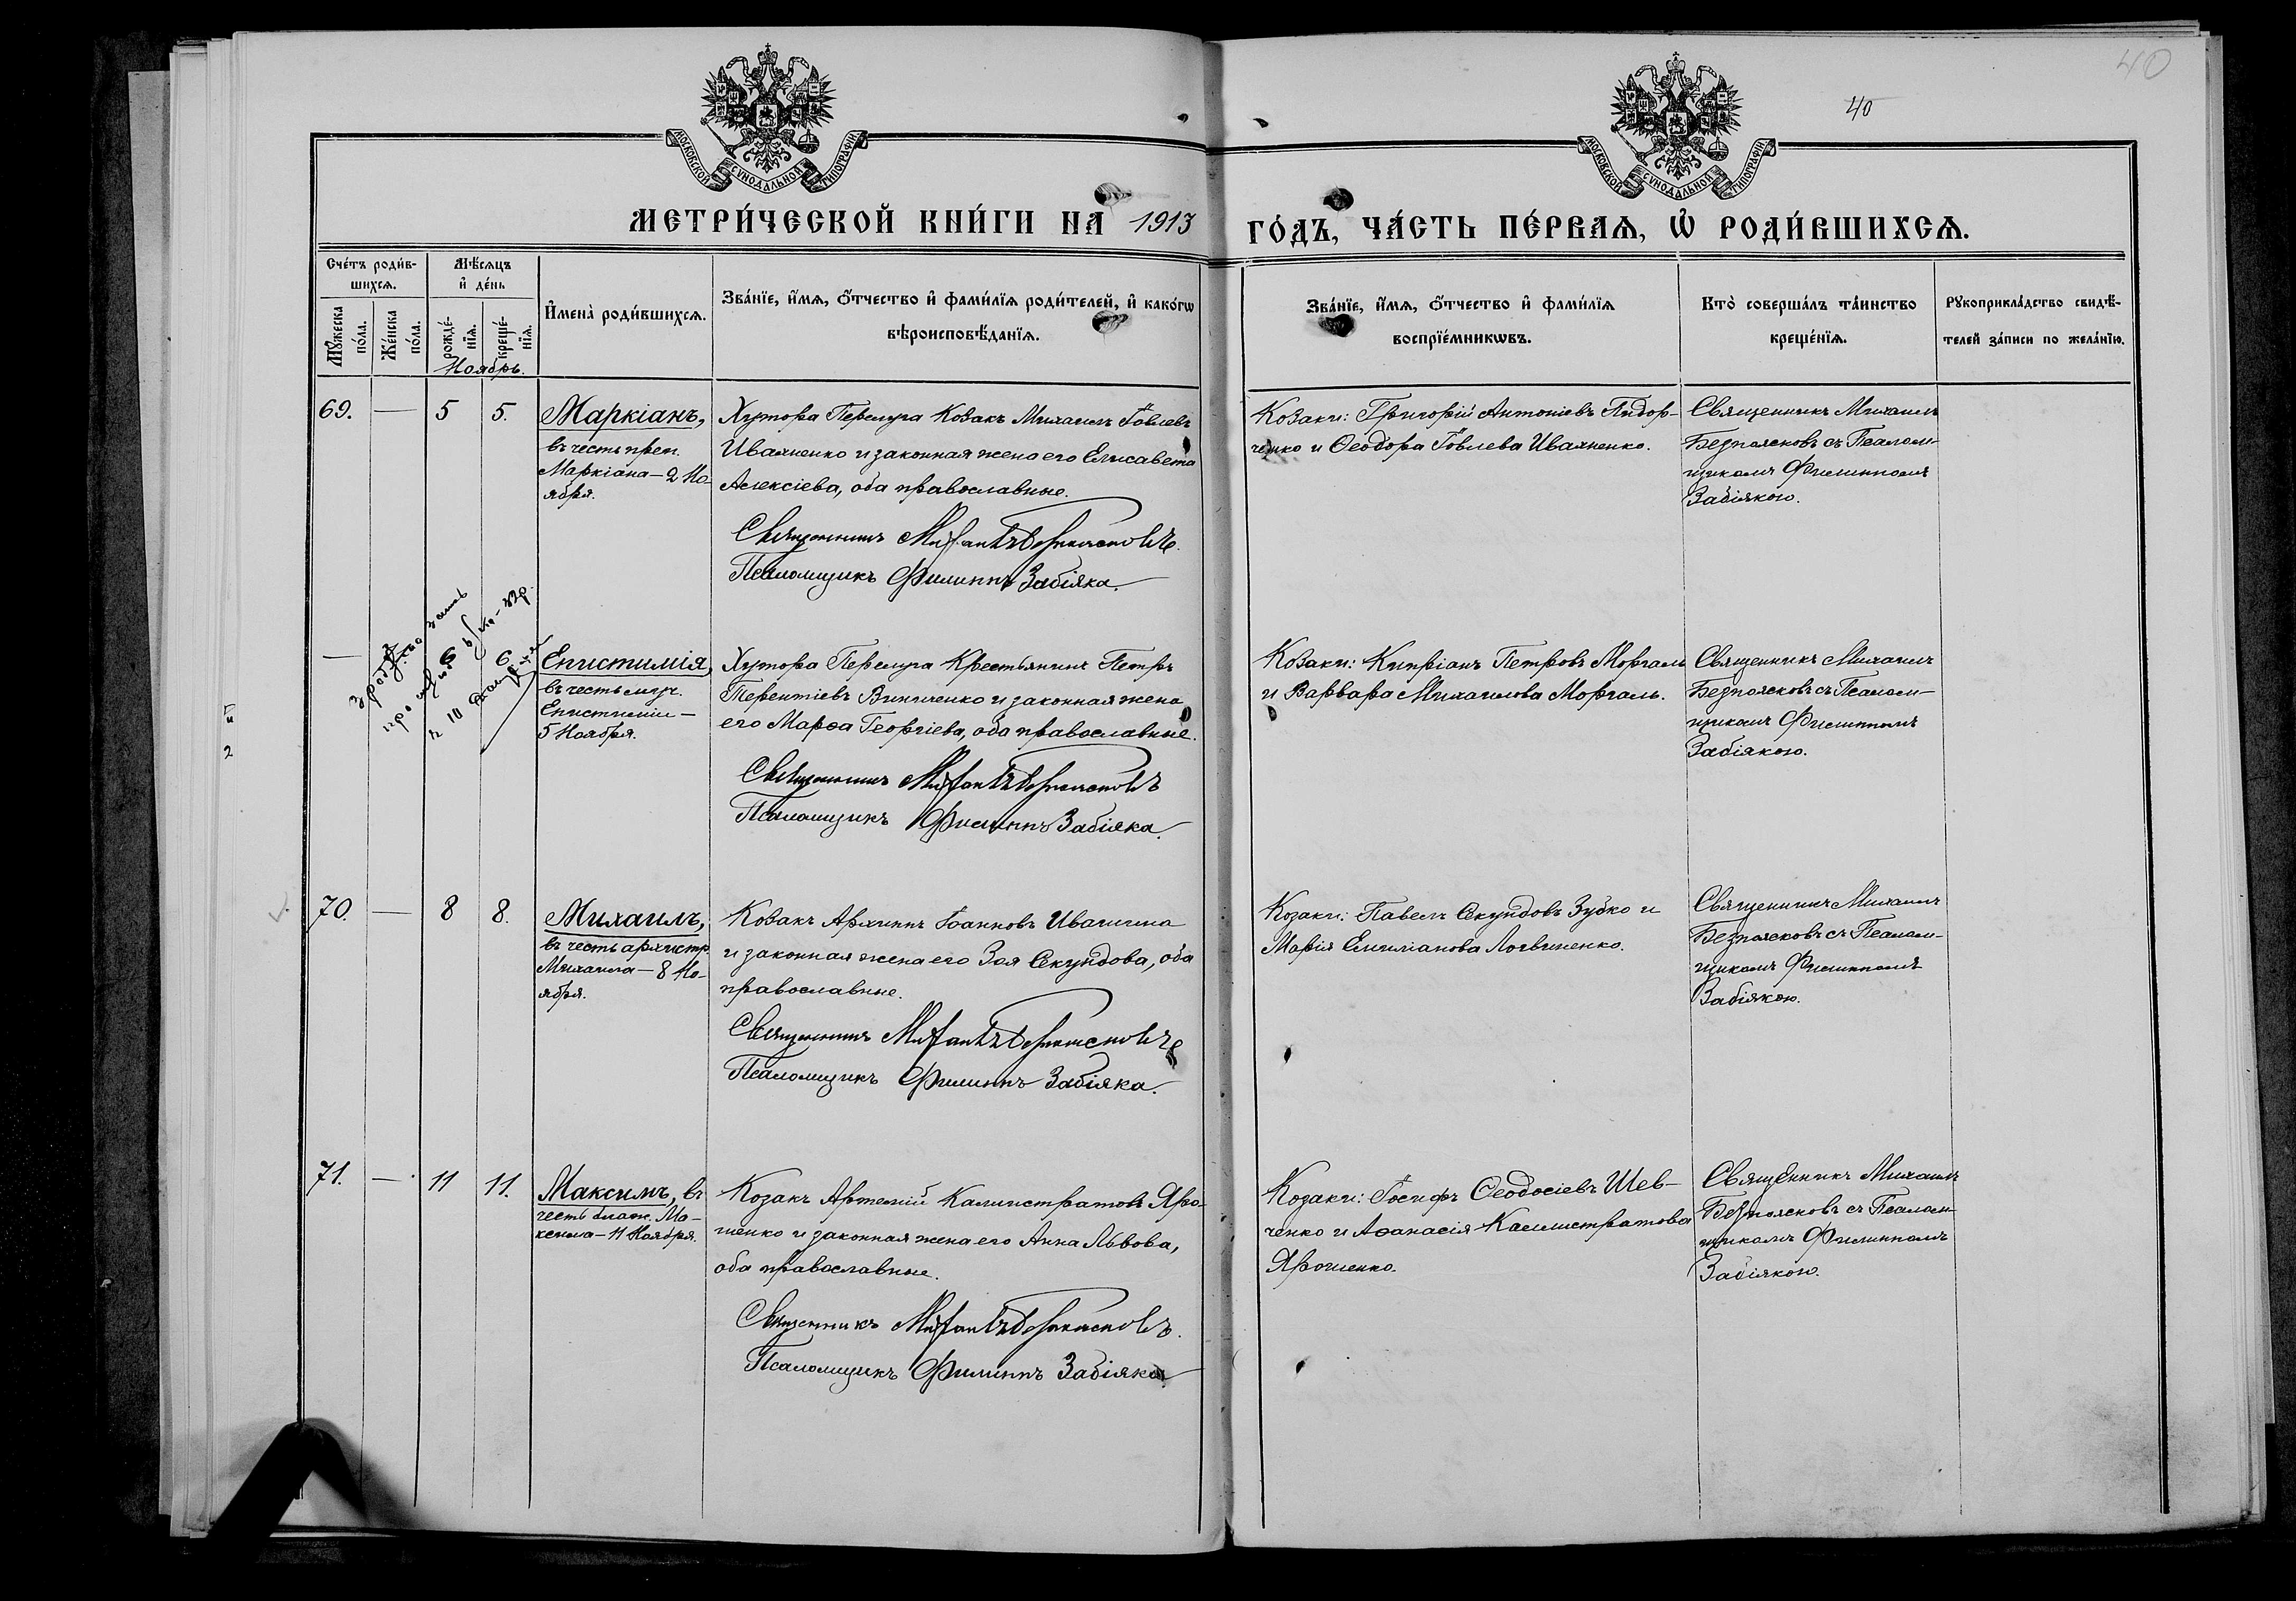 40
40
МОСКОВСКОЙ СѴНОДАЛЬНОЙ ТИПОГРАФІИ
МОСКОВСКОЙ СѴНОДАЛЬНОЙ ТИПОГРАФІИ
МЕТРИ́ЧЕСКОЙ КНИ́ГИ НА 1913 ГО́ДЪ, ЧА́СТЬ ПЕ́РВАѦ, Ѽ РОДИ́ВШИХСѦ.
Сче́тъ роди́в-
шихсѧ.
Мѣ́сѧцъ
и҆ де́нь
Мꙋ́жеска по́ла.
Же́нска по́ла.
рожде́-нїѧ.
креще́-нїѧ.
И҆мена̀ роди́вшихсѧ.
Зва́нїе, и҆́мѧ, ѻ҆́тчество и҆ фами́лїѧ роди́телей, и҆ како́гѡ
вѣроисповѣ́данїѧ.
Зва́нїе, и҆́мѧ, ѻ҆́тчество и҆ фами́лїѧ
воспрїе́мникѡвъ.
Кто̀ соверша́лъ та́инство
креще́нїѧ.
Рꙋкоприкла́дство свидѣ́-
телей за́писи по жела́нїю.
Ноябрь.
69. — 5 5.
Маркіанъ,
въ честь преп.
Маркіана — 2 Но-
ября.
Хутора Перелуга Козакъ Михаилъ Іовлевъ
Иваненко и законная жена его Елисавета
Алексіева, оба православные.
Священникъ Михаилъ Безпоясковъ.
Псаломщикъ Филиппъ Забіяка.
Козаки: Григорій Антоніевъ
и Ѳеодора Іовлева Иваненко.
Священникъ Михаилъ
Безпоясковъ съ Псалом-
щикомъ Филиппомъ
Забіякою.
— 6 6
Епистимія,
въ честь муч.
Епистиміи —
5 Ноября.
Хутора Перелуга Крестьянинъ Петръ
Терентіевъ Винниченко и законная жена
его Марѳа Георгіева, оба православные.
Священникъ Михаилъ Безпоясковъ
Псаломщикъ Филиппъ Забіяка.
Козаки: Кипріанъ Петровъ Моргаль
и Варвара Михаилова Моргаль.
Священникъ Михаилъ
Безпоясковъ съ Псалом-
щикомъ Филиппомъ
Забіякою.
70. — 8 8.
Михаилъ,
въ честь архистр.
Михаила — 8 Но-
ября.
Козакъ Архиппъ Іоанновъ
и законная жена его Зоя Секундова, оба
православные.
Священникъ Михаилъ Безпоясковъ
Псаломщикъ Филиппъ Забіяка.
Козаки: Павелъ Секундовъ Зубко и
Марія Емиліанова Логвиненко.
Священникъ Михаилъ
Безпоясковъ съ Псалом-
щикомъ Филиппомъ
Забіякою.
71. — 11 11.
Максимъ, въ
честь блаж. Ма-
ксима — 11 Ноября.
Козакъ Артемій Каллистратовъ Яро-
шенко и законная жена его Анна Львова,
оба православные.
Священникъ Михаилъ Безпоясковъ.
Псаломщикъ Филиппъ Забіяка.
Козаки: Іосифъ Ѳеодосіевъ Шев-
ченко и Аѳанасія Каллистратова
Ярошенко.
Священникъ Михаилъ
Безпоясковъ съ Псалом-
щикомъ Филиппомъ
Забіякою.